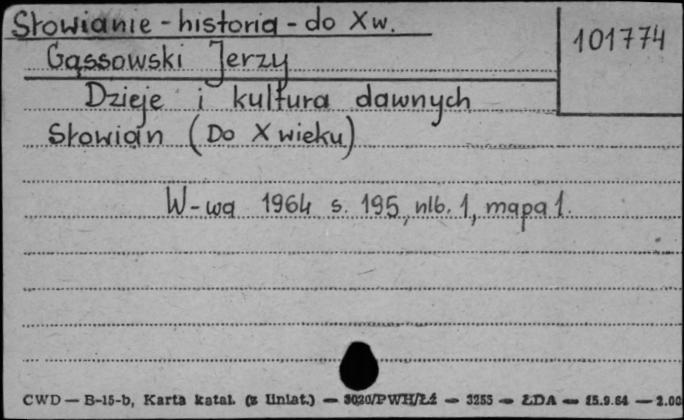 Słowianie - historia - do X w.
101774
Gąssowski Jerzy
Dzieje i kultura dawnych
Słowian (Do X wieku)
W-wa 1964 s. 195, nlb. 1, mapa 1.
CWD — B-15-b, Karta katal. (z liniat.) — 3020/PWH/Łź — 3253 — ŁDA — 15.9.64 — 2.00